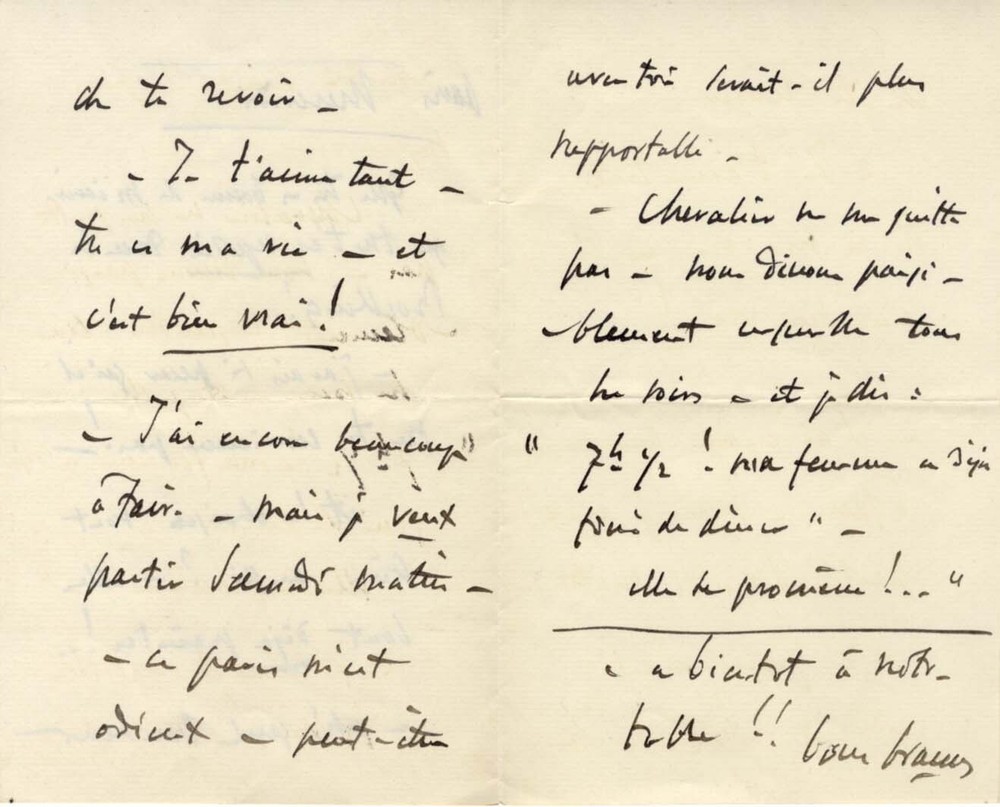 de te revoir –
– Je t'aime tant –
tu es ma vie – et
c'est bien vrai !
– J'ai encore beaucoup
à faire – mais je veux
partir Samedi matin –
– ce paris m'est
odieux – peut-être
avec toi serait-il plus
supportable –
– Chevalier ne me quitte
pas – nous dinons paisi-
blement ensemble tous
les soirs – et je dis :
" 7h 1/2 ! ma femme a déjà
fini de diner " –
elle se promène !... "
– a bientot à notre
table !! bons